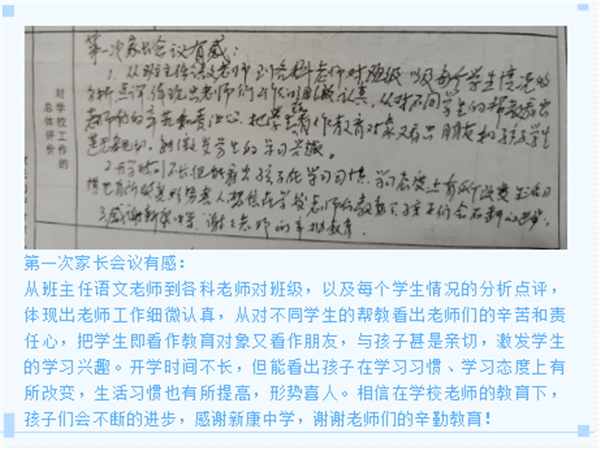 对学校工作的
总体评价
第一次家长会议有感：
1. 从班主任语文老师到各科老师对班级 以及每个学生情况的
分析点评，体现出老师们工作细微认真，从对不同学生的帮教看出
老师们的辛苦和责任心，把学生看作教育对象又看出朋友和孩子学生
甚是亲切，能激发学生的学习兴趣。
2. 开学时间不长，但能看出孩子在学习习惯，学习态度上有所改变 生活习
惯也有所改变形势喜人 相信在学校老师的教育下，孩子们会不断的进步，
3. 感谢新康中学，谢谢老师的辛勤教育。
第一次家长会议有感：
从班主任语文老师到各科老师对班级，以及每个学生情况的分析点评，
体现出老师工作细微认真，从对不同学生的帮教看出老师们的辛苦和责
任心，把学生即看作教育对象又看作朋友，与孩子甚是亲切，激发学生
的学习兴趣。开学时间不长，但能看出孩子在学习习惯、学习态度上有
所改变，生活习惯也有所提高，形势喜人。相信在学校老师的教育下，
孩子们会不断的进步，感谢新康中学，谢谢老师们的辛勤教育！